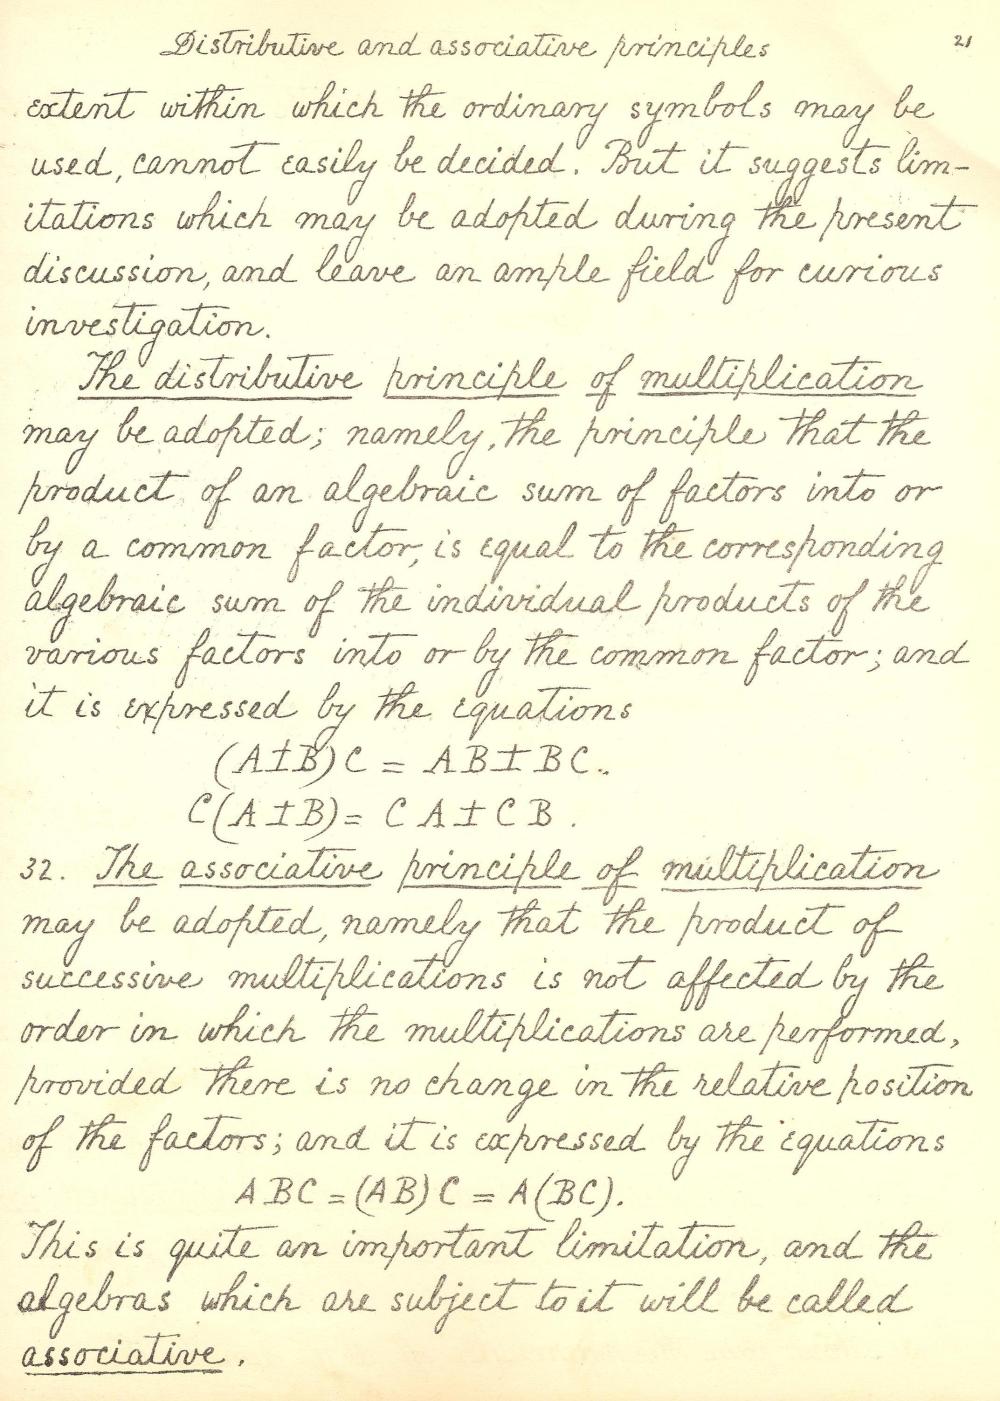 Distributive and associative principles 21
extent within which the ordinary symbols may be
used, cannot easily be decided. But it suggests lim-
itations which may be adopted during the present
discussion, and leave an ample field for curious
investigation.
The distributive principle of multiplication
may be adopted; namely, the principle that the
product of an algebraic sum of factors into or
by a common factor, is equal to the corresponding
algebraic sum of the individual products of the
various factors into or by the common factor; and
it is expressed by the equations
(A±B)C = AB±BC.
C(A±B)= CA±CB.
32. The associative principle of multiplication
may be adopted, namely that the product of
successive multiplications is not affected by the
order in which the multiplications are performed,
provided there is no change in the relative position
of the factors; and it is expressed by the equations
ABC=(AB)C = A(BC).
This is quite an important limitation, and the
algebras which are subject to it will be called
associative.